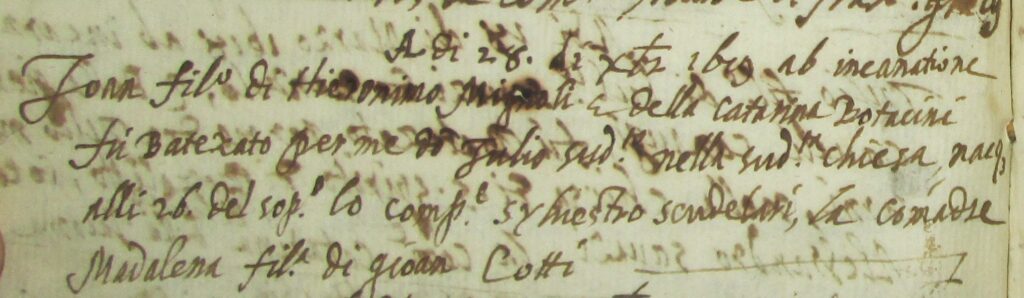 A di 28. di xbre 1619 ab incarnatione
Joan fil.o di Hieronimo Mignali e della Catarina Botacini
fu Batezato per me do Julio sud.to nella sud.ta chiesa, nacq
alli 26. del sop.to lo comp.e Sylvestro scudelari, la comadre
Madalena fil.a di gioan Cotti